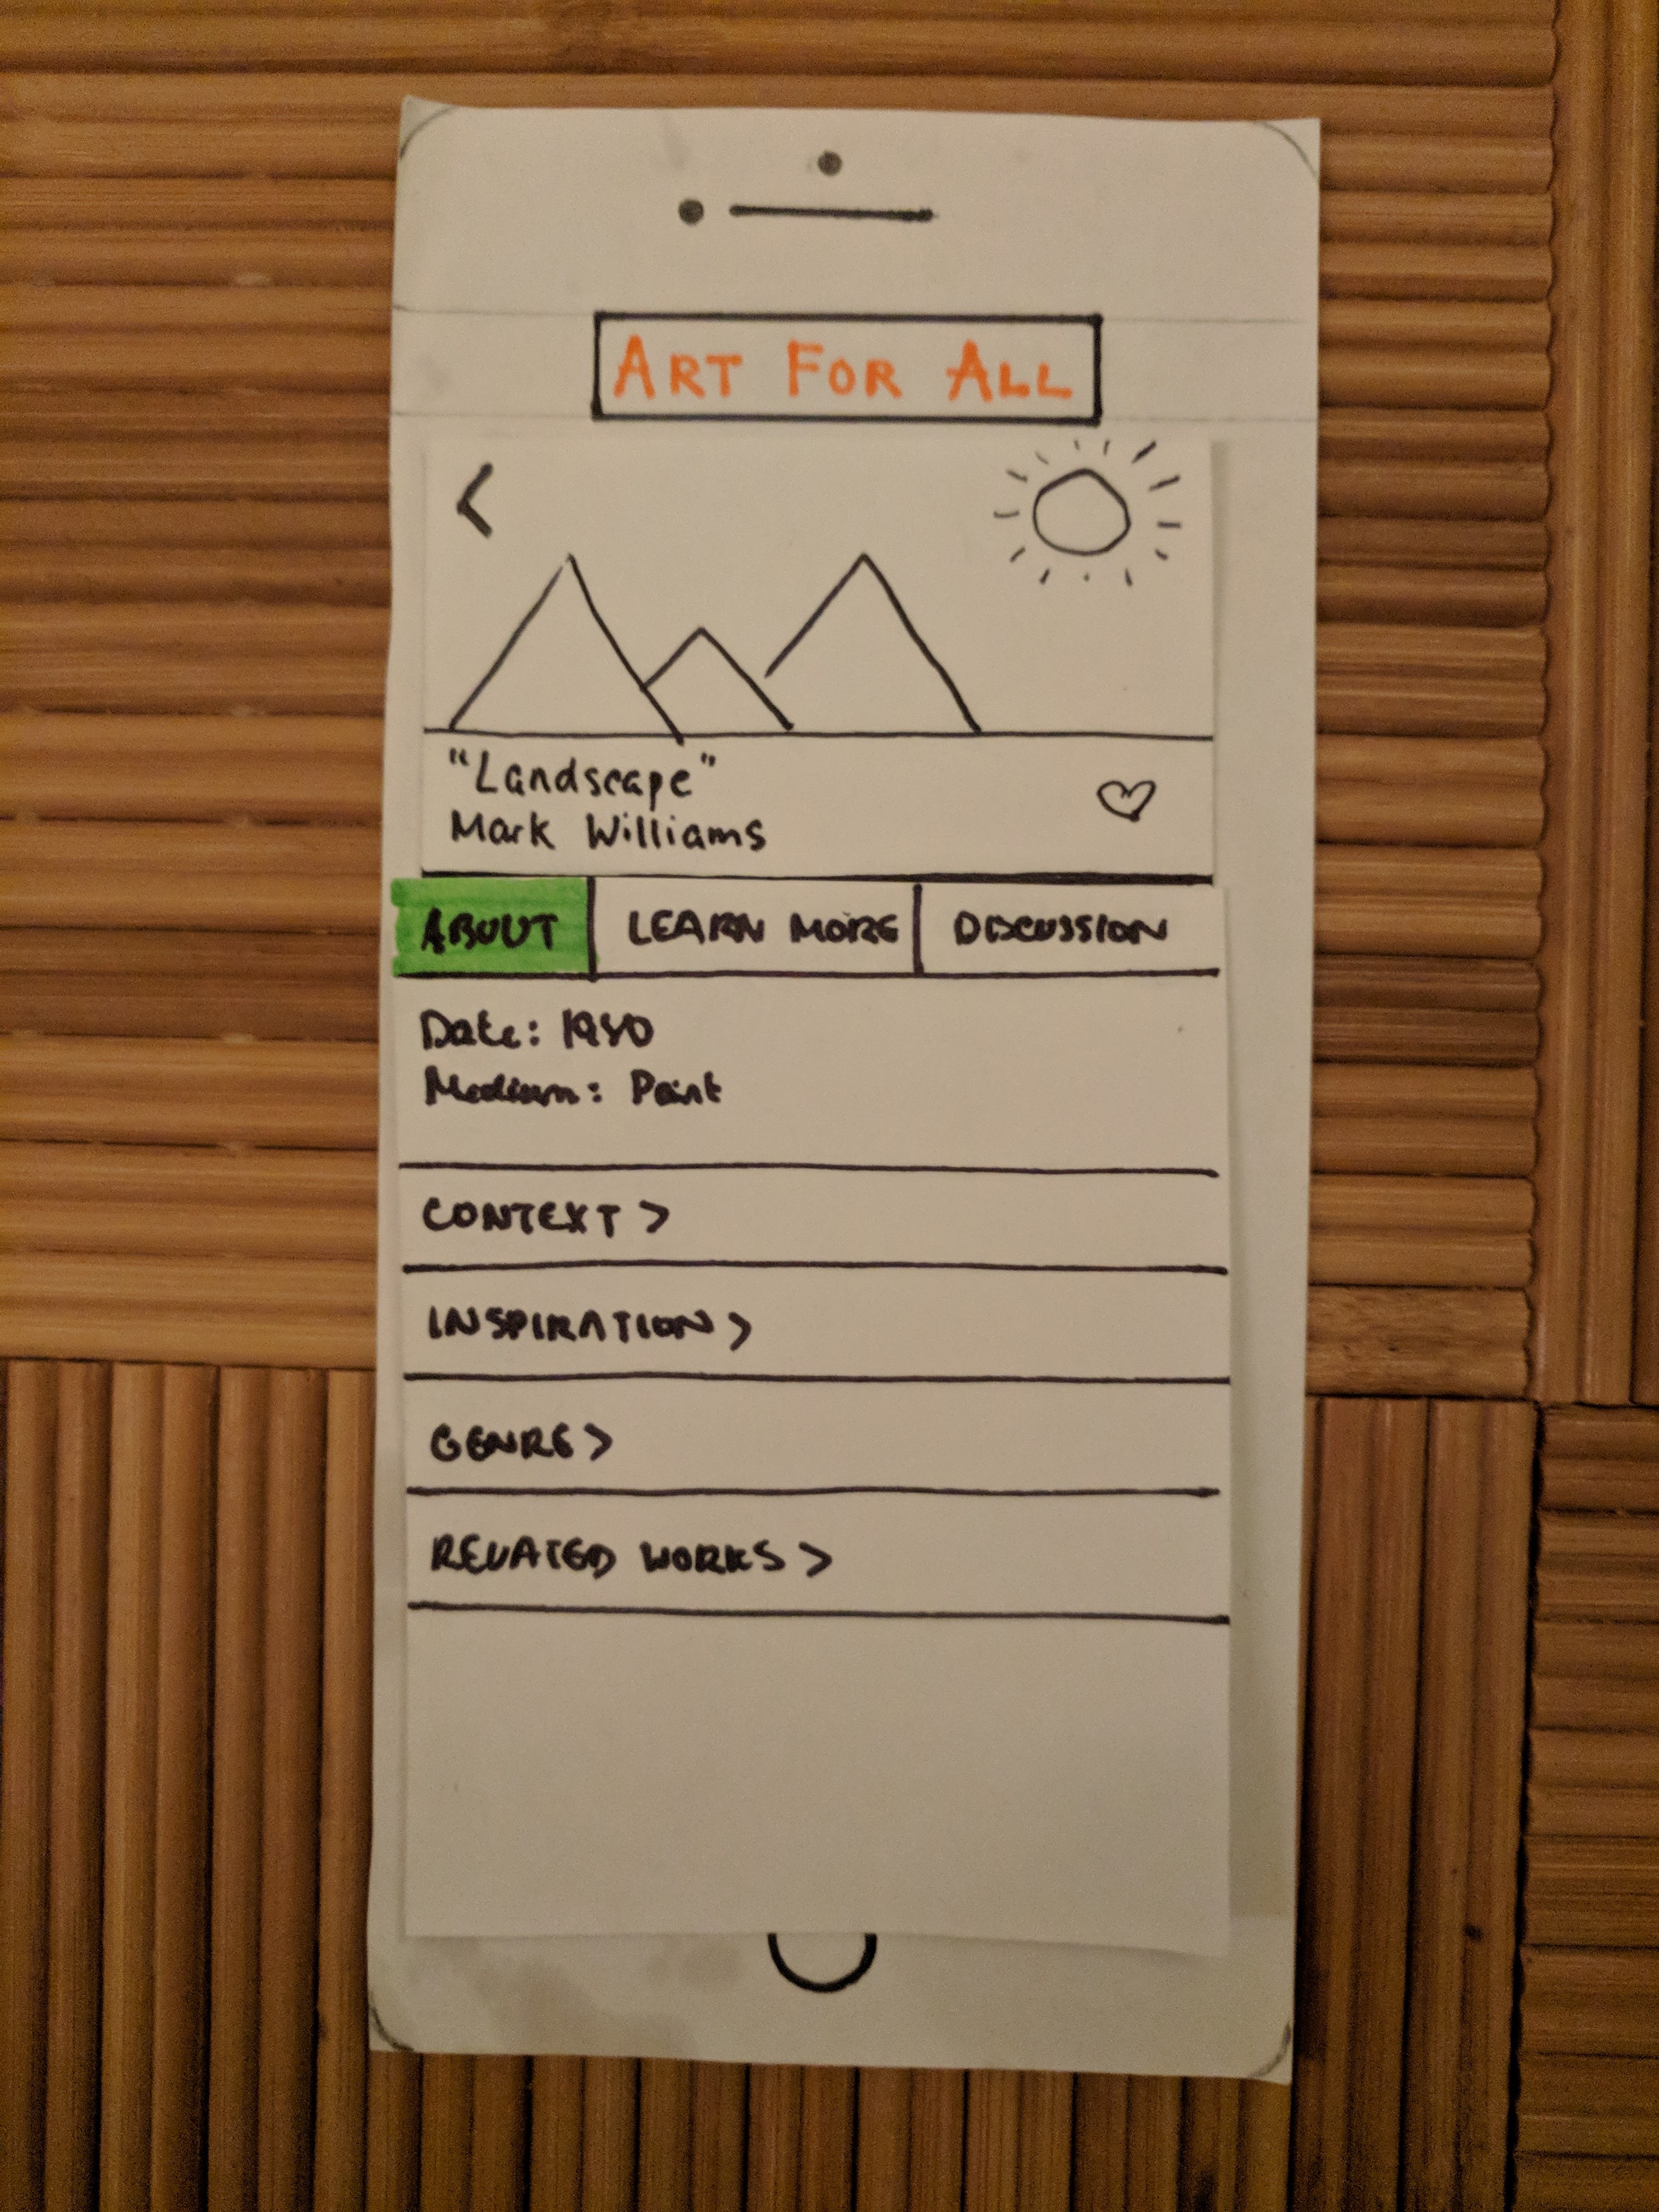 ART FOR ALL
<
"Landscape"
Mark Williams
ABOUT LEARN MORE DISCUSSION
Date: 1980
Medium: Paint
CONTEXT >
INSPIRATION >
GENRE >
RELATED WORKS >